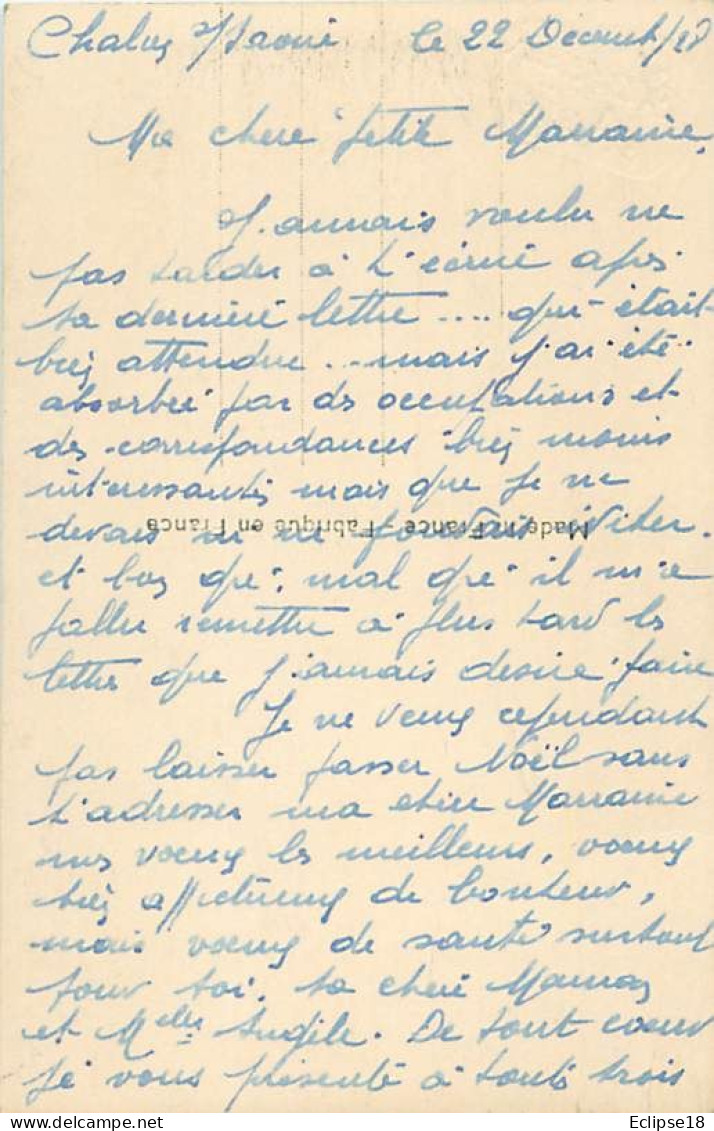 Chalon s/Saône le 22 Décemb/
Ma chere petite Marraine,
J'aurais voulu ne
pas tarder à t'écrire après
ta dernière lettre .... qui était
très attendue ... mais j'ai été
absorbée par des occupations et
des correspondances très moins
interessantes mais que je ne
devais ni ne pouvais éviter.
et bon gré, mal gré il m'a
fallu remettre à plus tard les
lettres que j'aimais desire faire
Je ne veux cependant
pas laisser passer Noël sans
t'adresser ma chère Marraine
mes voeux les meilleurs, voeux
très affectueux de bonheur,
mais voeux de santé surtout
pour toi, ta chère Maman
et Melle. De tout coeur
je vous présente à toutes trois
Made in France - Fabriqué en France
Eclipse18